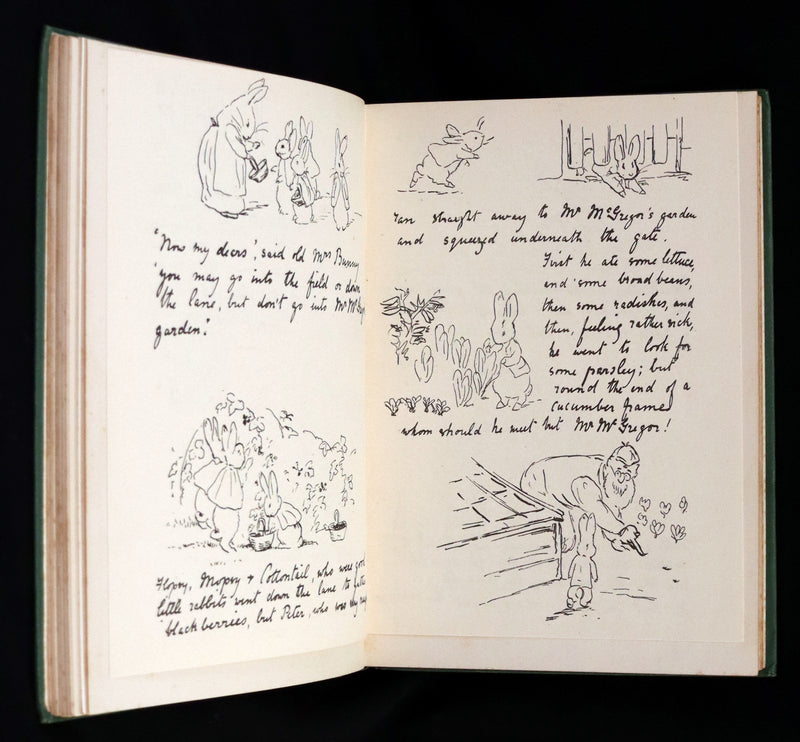 "Now my dears', said old Mrs Bunny
'you may go into the field or down
the lane, but don't go into Mr
garden."
Flopsy, Mopsy + Cottontail, who were good
little rabbits went down the lane to
blackberries, but Peter, who was
ran straight away to Mr McGregor's garden
and squeezed underneath the gate.
First he ate some lettuce,
and some broad beans,
then some radishes, and
then, feeling rather sick,
he went to look for
some parsley; but
round the end of a
cucumber frame
whom should he meet but Mr McGregor!